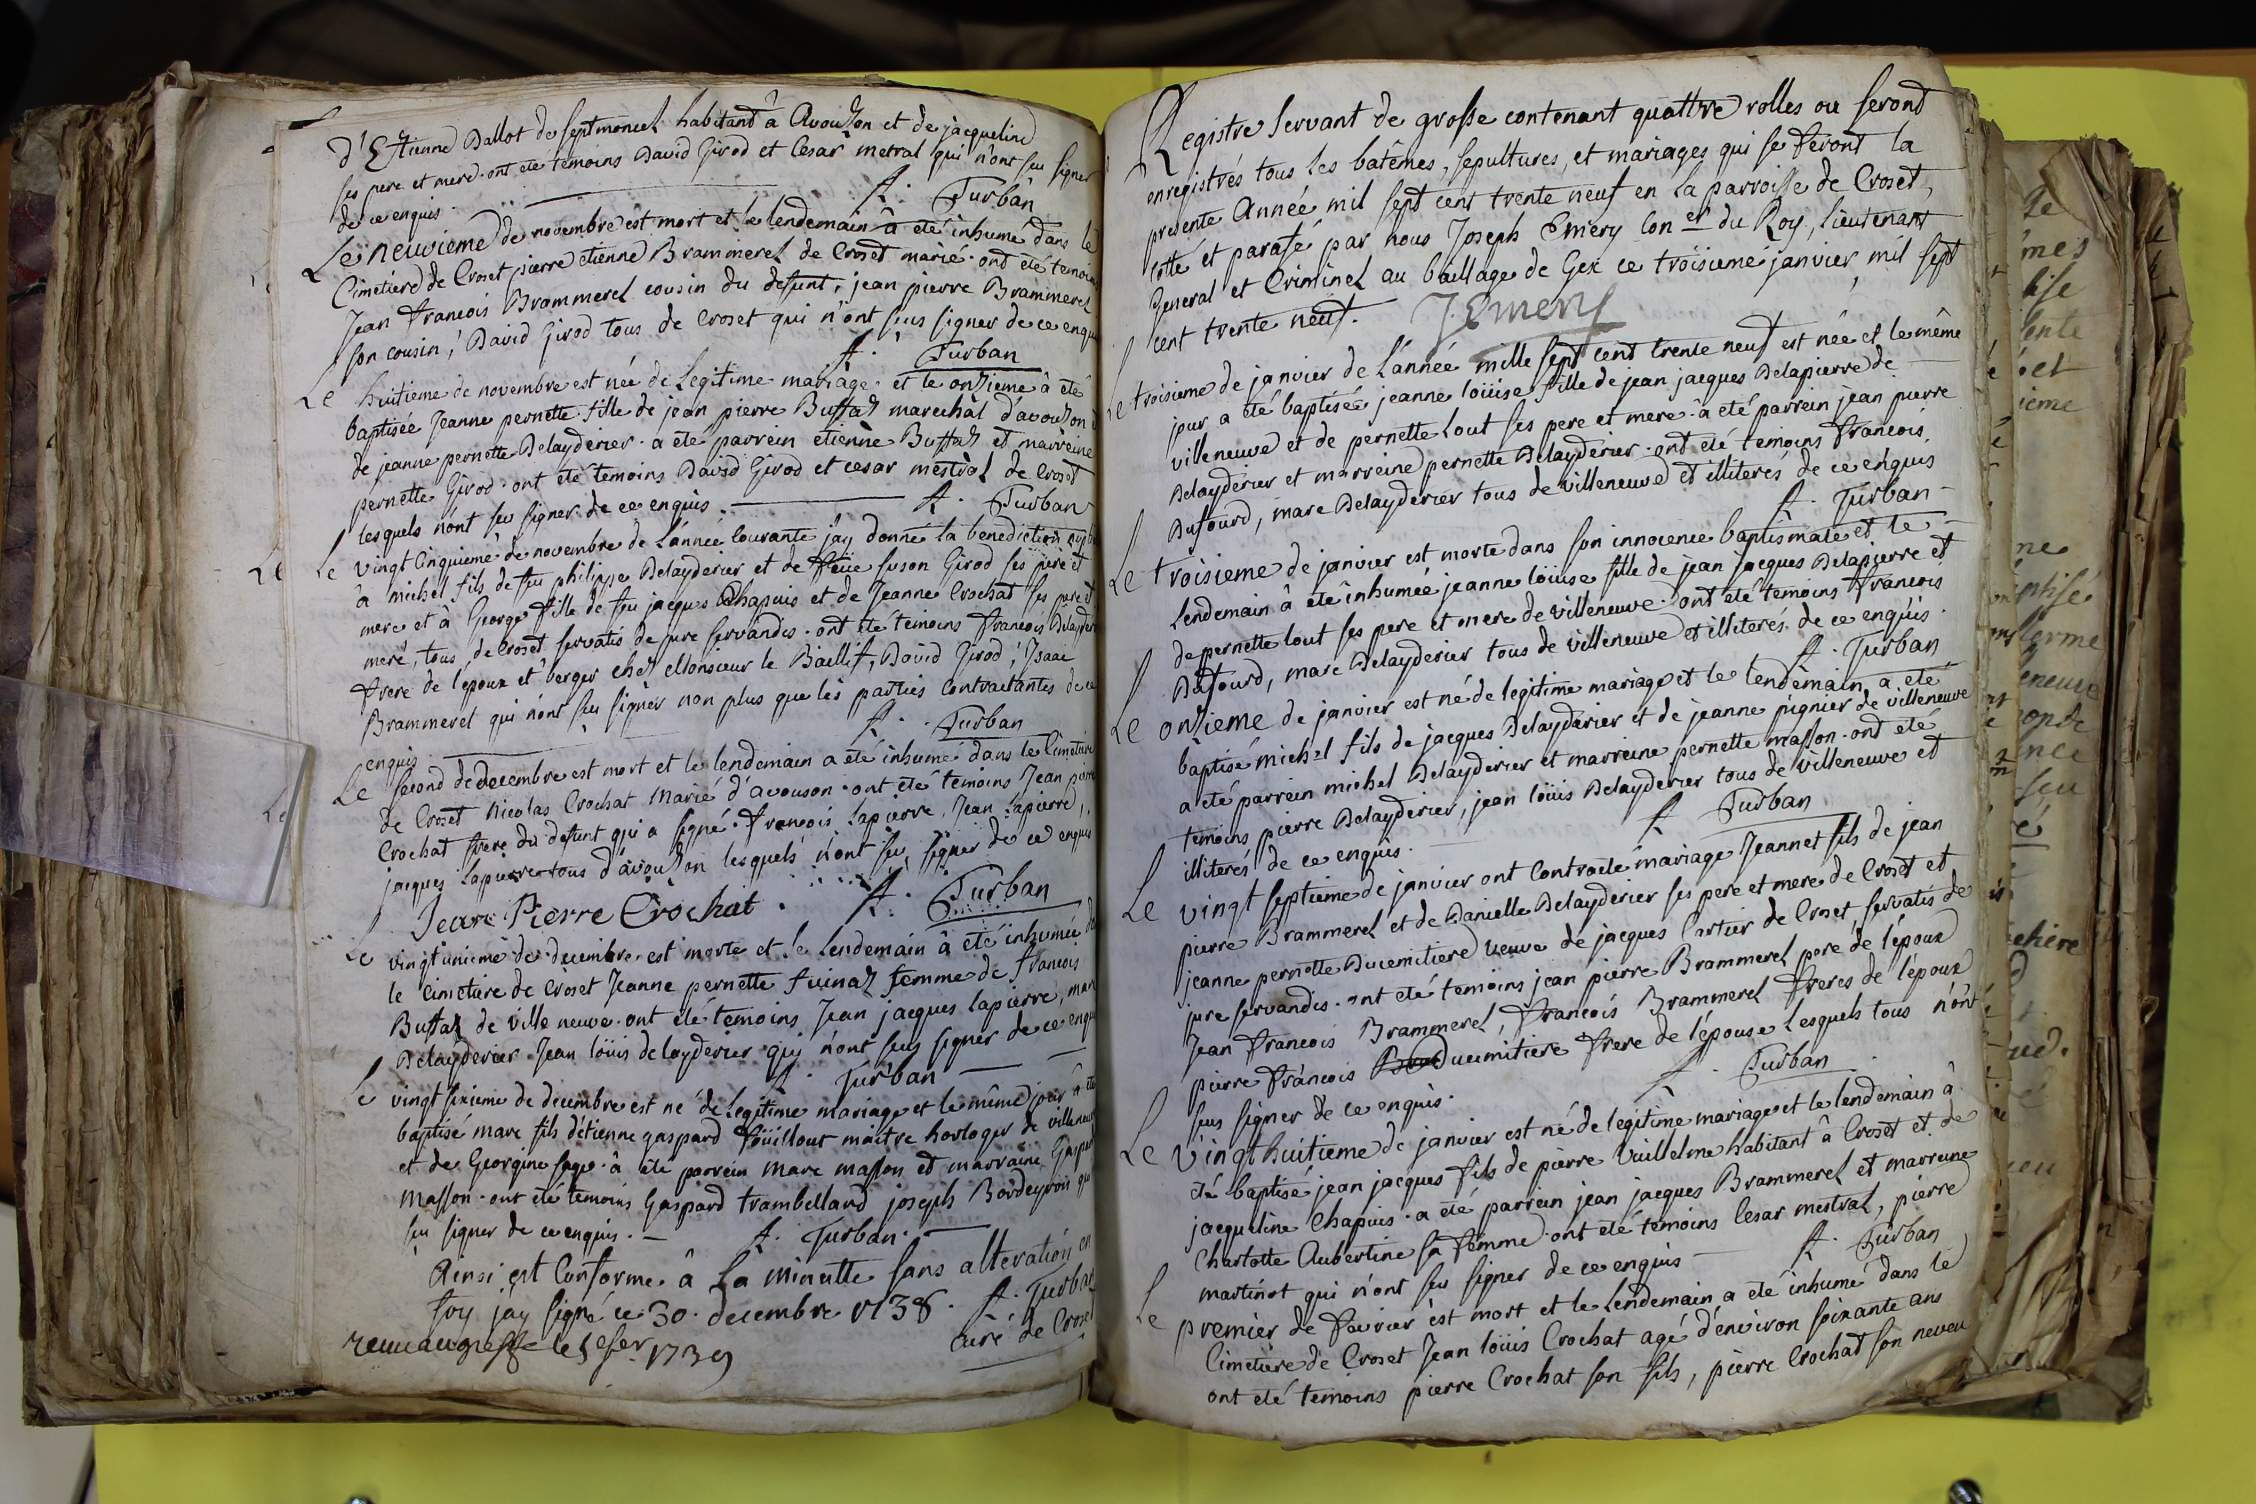 d'Etienne Ballot de septmoncel habitant â Avouzon et de jacqueline
ses pere et mere. ont eté temoins David Girod et Cesar metral qui n'ont seu signer
de ce enquis. A. Turban
Le neuvieme de novembre est mort et le lendemain â eté inhumé dans le
Cimetiere de Croset pierre etienne Brammerel de Croset marié. ont eté temoins
Jean francois Brammerel cousin du defunt, jean pierre Brammerel
son cousin, David Girod tous de Croset qui n'ont seus signer de ce enquis
A. Turban
Le huitieme de novembre est née de Legitime mariage et le onzieme â eté
baptisée Jeanne pernette fille de jean pierre Buffaz marechal d'avouzon et
de jeanne pernette Delayderier. a eté parrein etienne Buffaz et marreine
pernette Girod. ont eté temoins David Girod et cesar mestral de Croset
lesquels n'ont seu signer de ce enquis. A. Turban
Le vingt Cinquieme de novembre de L'année Courante j'ay donné la benediction
à michel fils de feu philippe Delayderier et de feüe suson Girod ses pere et
mere et à George fille de feu jacques Chapuis et de Jeanne Crochat ses pere et
mere, tous de Croset servatis de jure servandis. ont eté temoins francois Delayderier
frere de l'epoux et berger chez Monsieur le Baillif, David Girod, Isaac
Brammerel qui n'ont seu signer non plus que les parties Contractantes de ce
enquis A. Turban
Le second de Decembre est mort et le lendemain a eté inhumé dans le Cimetiere
de Croset Nicolas Crochat Marié d'avouson. ont eté temoins Jean pierre
Crochat frere du defunt qui a signé. francois Lapierre, Jean Lapierre,
jacques Lapierre tous d'avouzon lesquels n'ont seu signer de ce enquis
Jean Pierre Crochat. A. Turban
Le vingt unieme de decembre est morte et le lendemain â eté inhumée
le Cimetiere de Croset Jeanne pernette fuinaz femme de francois
Buffaz de ville neuve. ont eté temoins Jean jacques lapierre, marc
Delayderier Jean loüis delayderier qui n'ont seus signer de ce enquis
A. Turban
Le vingt sixieme de decembre est né de Legitime mariage et le même jour â eté
baptisé marc fils d'etienne gaspard foüillout maitre horloger de villeneuve
et de Georgine sage. â eté parrein Marc masson et marraine Gasparde
Masson. ont eté temoins Gaspard trambelland joseph Bordeyrois qui
seu signer de ce enquis. A. Turban.
Ainsi est Conforme â La Minutte sans alteration en
foy j'ay signé ce 30. decembre 1738. A. Turban
curé de Croset
1739
Registre servant de grosse contenant quattre rolles ou seront
enregistrés tous les batêmes, sepultures, et mariages qui se feront la
presente Année mil sept cent trente neuf en la parroisse de Croset,
cotté et parafé par nous Joseph Emery Con.er du Roy, lieutenant
General et Criminel au bailliage de Gex ce troisieme janvier mil sept
cent trente neuf. J. Emery
Le troisieme de janvier de L'année mille sept cent trente neuf est née et le même
jour a eté baptisée jeanne loüise fille de jean jacques Delapierre de
villeneuve et de pernette Lout ses pere et mere. â eté parrein jean pierre
Delayderier et marreine pernette Delayderier. ont eté temoins francois
Dufourd, marc Delayderier tous de villeneuve et illiterés de ce enquis
A. Turban
Le troisieme de janvier est morte dans son innocence baptismale et le
Lendemain â eté inhumée jeanne loüise fille de jean jacques Delapierre et
de pernette lout ses pere et mere de villeneuve. ont eté temoins francois
Dufourd, marc Delayderier tous de villeneuve et illiterés de ce enquis.
A. Turban
Le onzieme de janvier est né de legitime mariage et le lendemain a eté
baptisé michel fils de jacques Delayderier et de jeanne pignier de villeneuve
a eté parrein michel Delayderier et marreine pernette masson. ont eté
temoins pierre Delayderier, jean loüis Delayderier tous de villeneuve et
illiterés de ce enquis. A Turban
Le vingt septieme de janvier ont Contracté mariage Jeannet fils de jean
pierre Brammerel et de Danielle Delayderier ses pere et mere de Croset et
jeanne pernette Ducemitiere veuve de jacques Cartier de Croset, servatis de
jure servandis. ont eté temoins jean pierre Brammerel pere de l'époux
Jean francois Brammerel, francois Brammerel freres de l'époux
pierre francois Ducimitiere frere de l'épouse Lesquels tous n'ont
seus signer de ce enquis. A. Turban
Le vingt huitieme de janvier est né de legitime mariage et le lendemain â
eté baptisé jean jacques fils de pierre Vuillelme habitant â Croset et de
jacqueline Chapuis. a eté parrein jean jacques Brammerel et marreine
Charlotte Aubertine sa femme. ont eté temoins Cesar mestral, pierre
martinot qui n'ont seu signer de ce enquis A. Turban
Le premier de fevrier est mort et le Lendemain a eté inhumé dans le
Cimetiere de Croset Jean loüis Crochat agé d'environ soixante ans
ont eté temoins pierre Crochat son fils, pierre Crochat son neveu